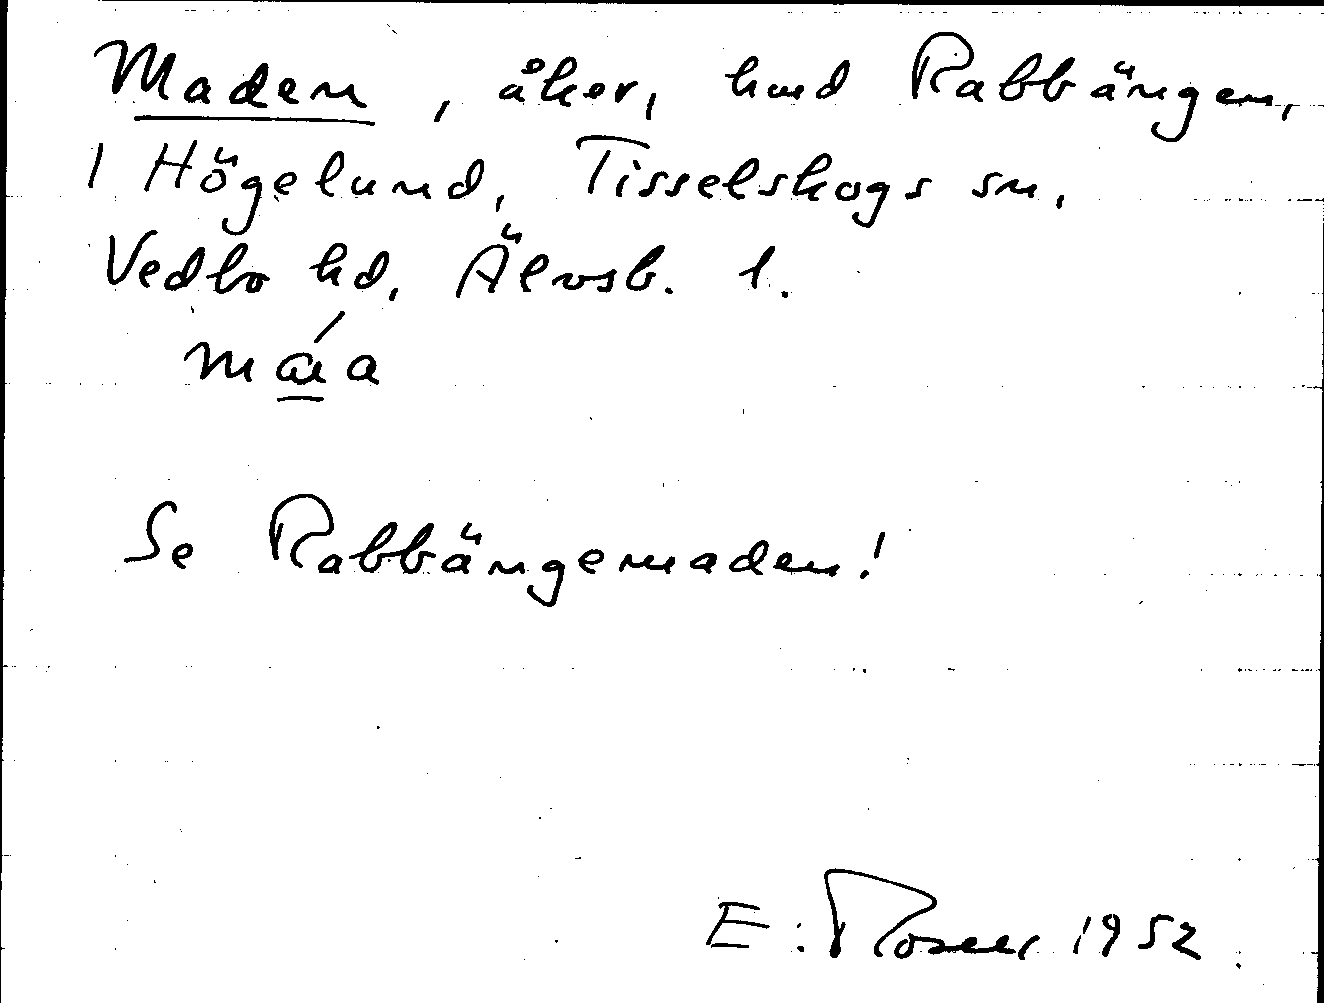 Maden, åker, hmd Rabbängen,
1 Högelund, Tisselskogs sn,
Vedbo hd, Älvsb. l.
máa
Se Rabbängemaden!
E: 1952